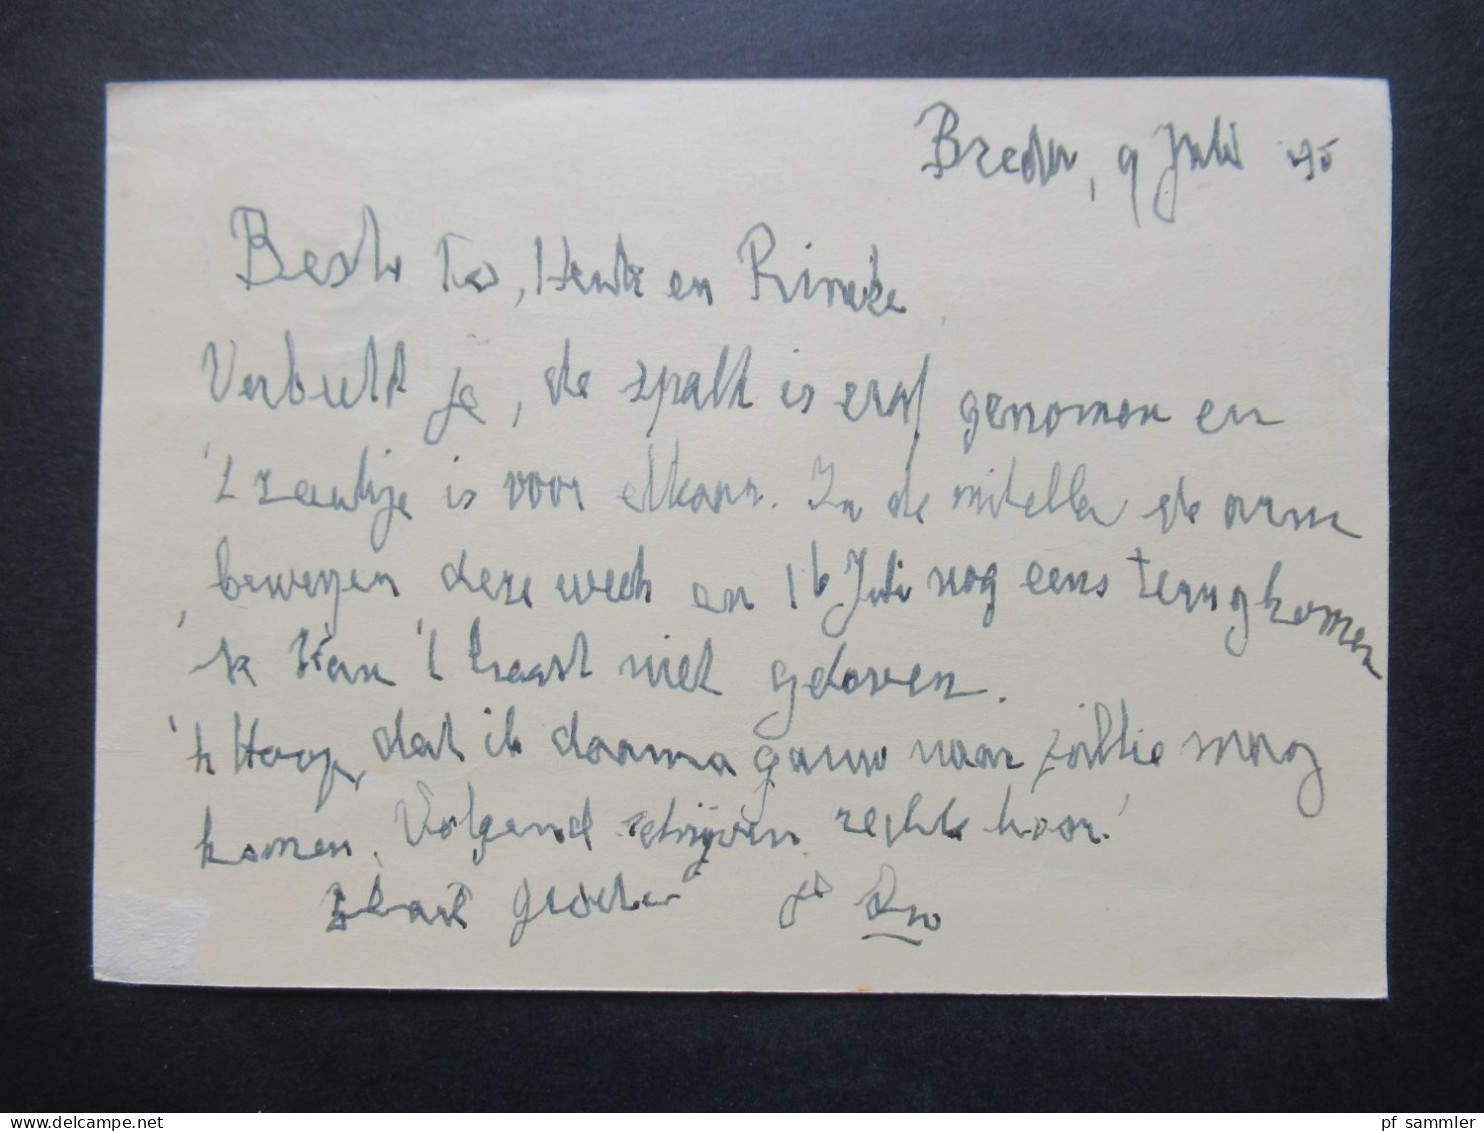 Breda, 9 Juli
Beste To, Henk en Rineke
Verbeeld je, de spalk is eraf genomen en
't zaakje is voor elkaar. In de mitella de arm
bewegen deze week en 16 Juli nog eens terugkomen
Ik kan 't haast niet geloven.
'k Hoop, dat ik daarna gauw naar mag
komen. Volgend schrijven rechts hoor!
groeten je
pf_sammler
delcampe.net